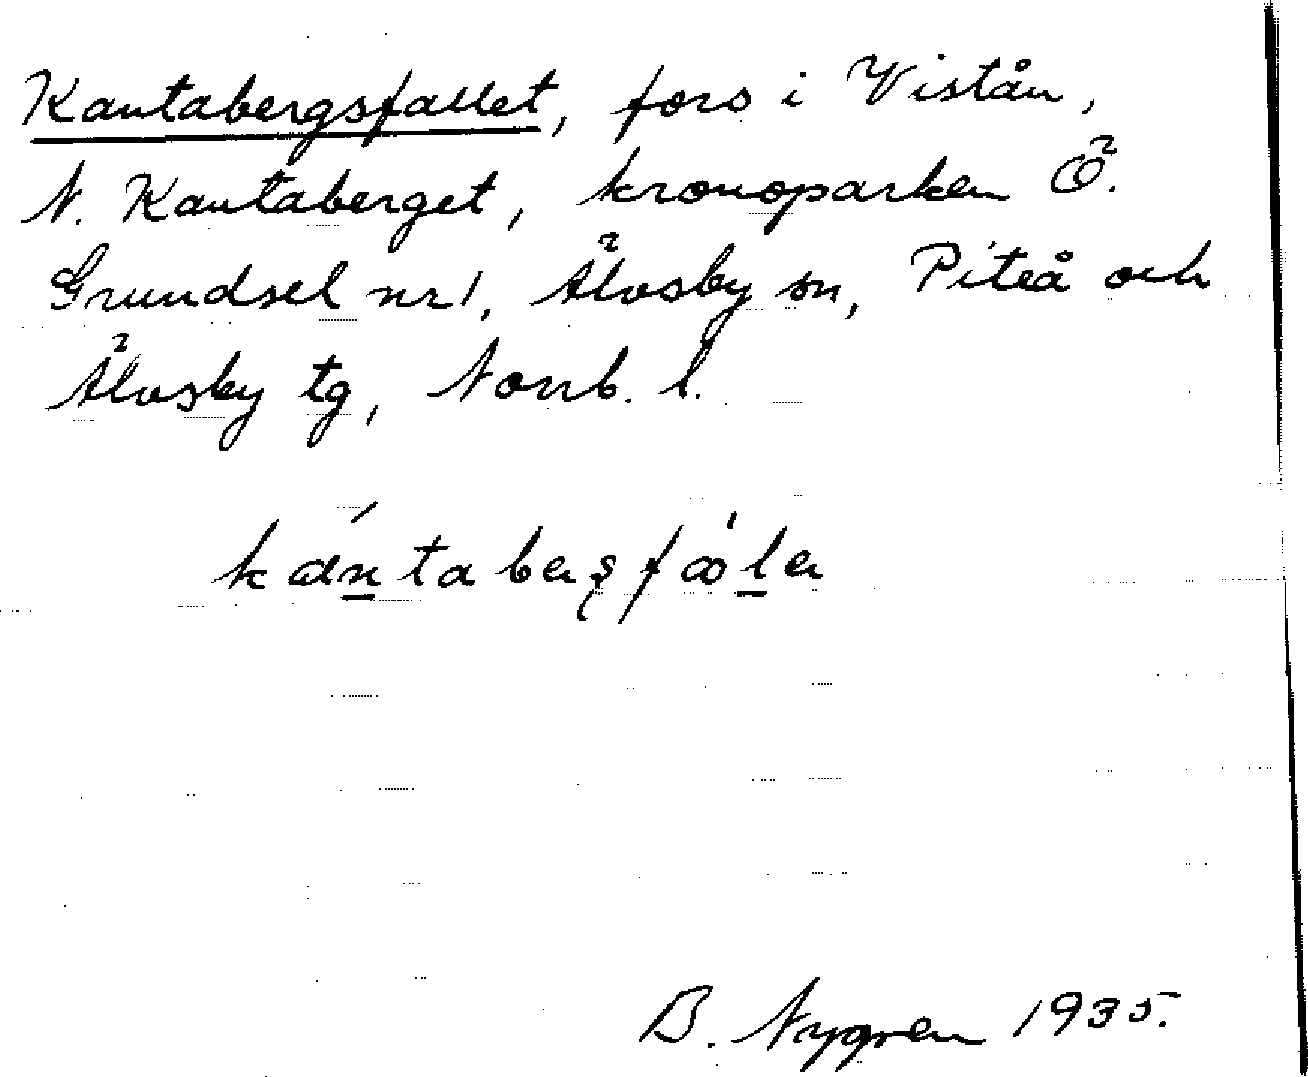 Kantabergsfallet, fors i Vistån,
N. Kantaberget, kronoparken Ö.
Grundsel nr 1, Älvsby sn, Piteå och
Älvsby tg, Norrb. l.
kántabeʂfáler
B. Nygren 1935.